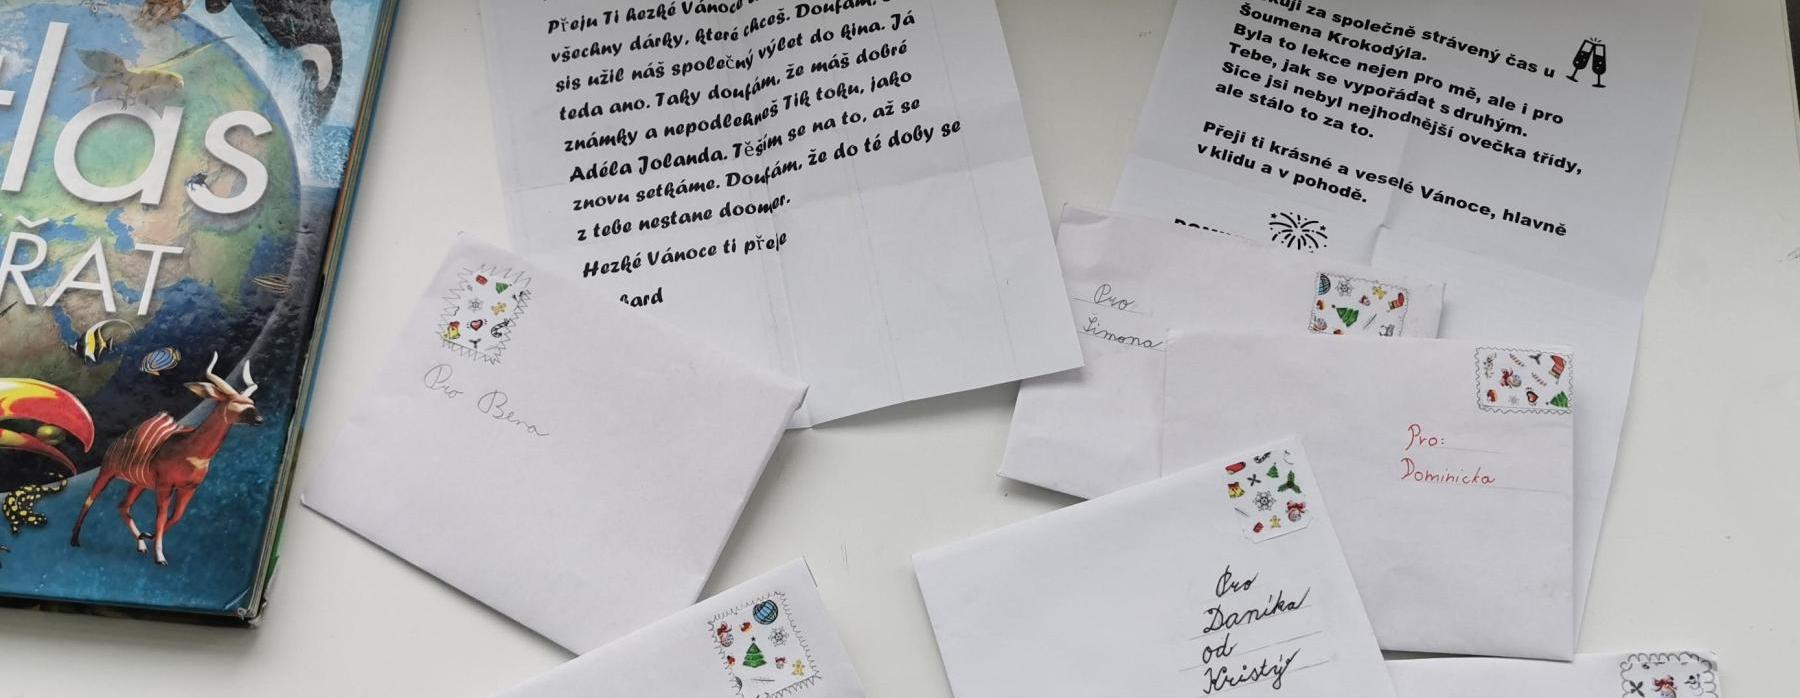 tlas
ŘAT
Přeju Ti hezké Vánoce
všechny dárky, které chceš. Doufám,
sis užil náš společný výlet do kina. Já
teda ano. Taky doufám, že máš dobré
známky a nepodlehneš Tik toku, jako
Adéla Jolanda. Těším se na to, až se
znovu setkáme. Doufám, že do té doby se
z tebe nestane doomer.
Hezké Vánoce ti přeje
ard
za společně strávený čas u
Šoumena Krokodýla.
Byla to lekce nejen pro mě, ale i pro
Tebe, jak se vypořádat s druhým.
Sice jsi nebyl nejhodnější ovečka třídy,
ale stálo to za to.
Přeji ti krásné a veselé Vánoce, hlavně
v klidu a v pohodě.
Pro Bena
Pro
Šimona
Pro:
Dominicka
Pro
Daníka
od
Kristý